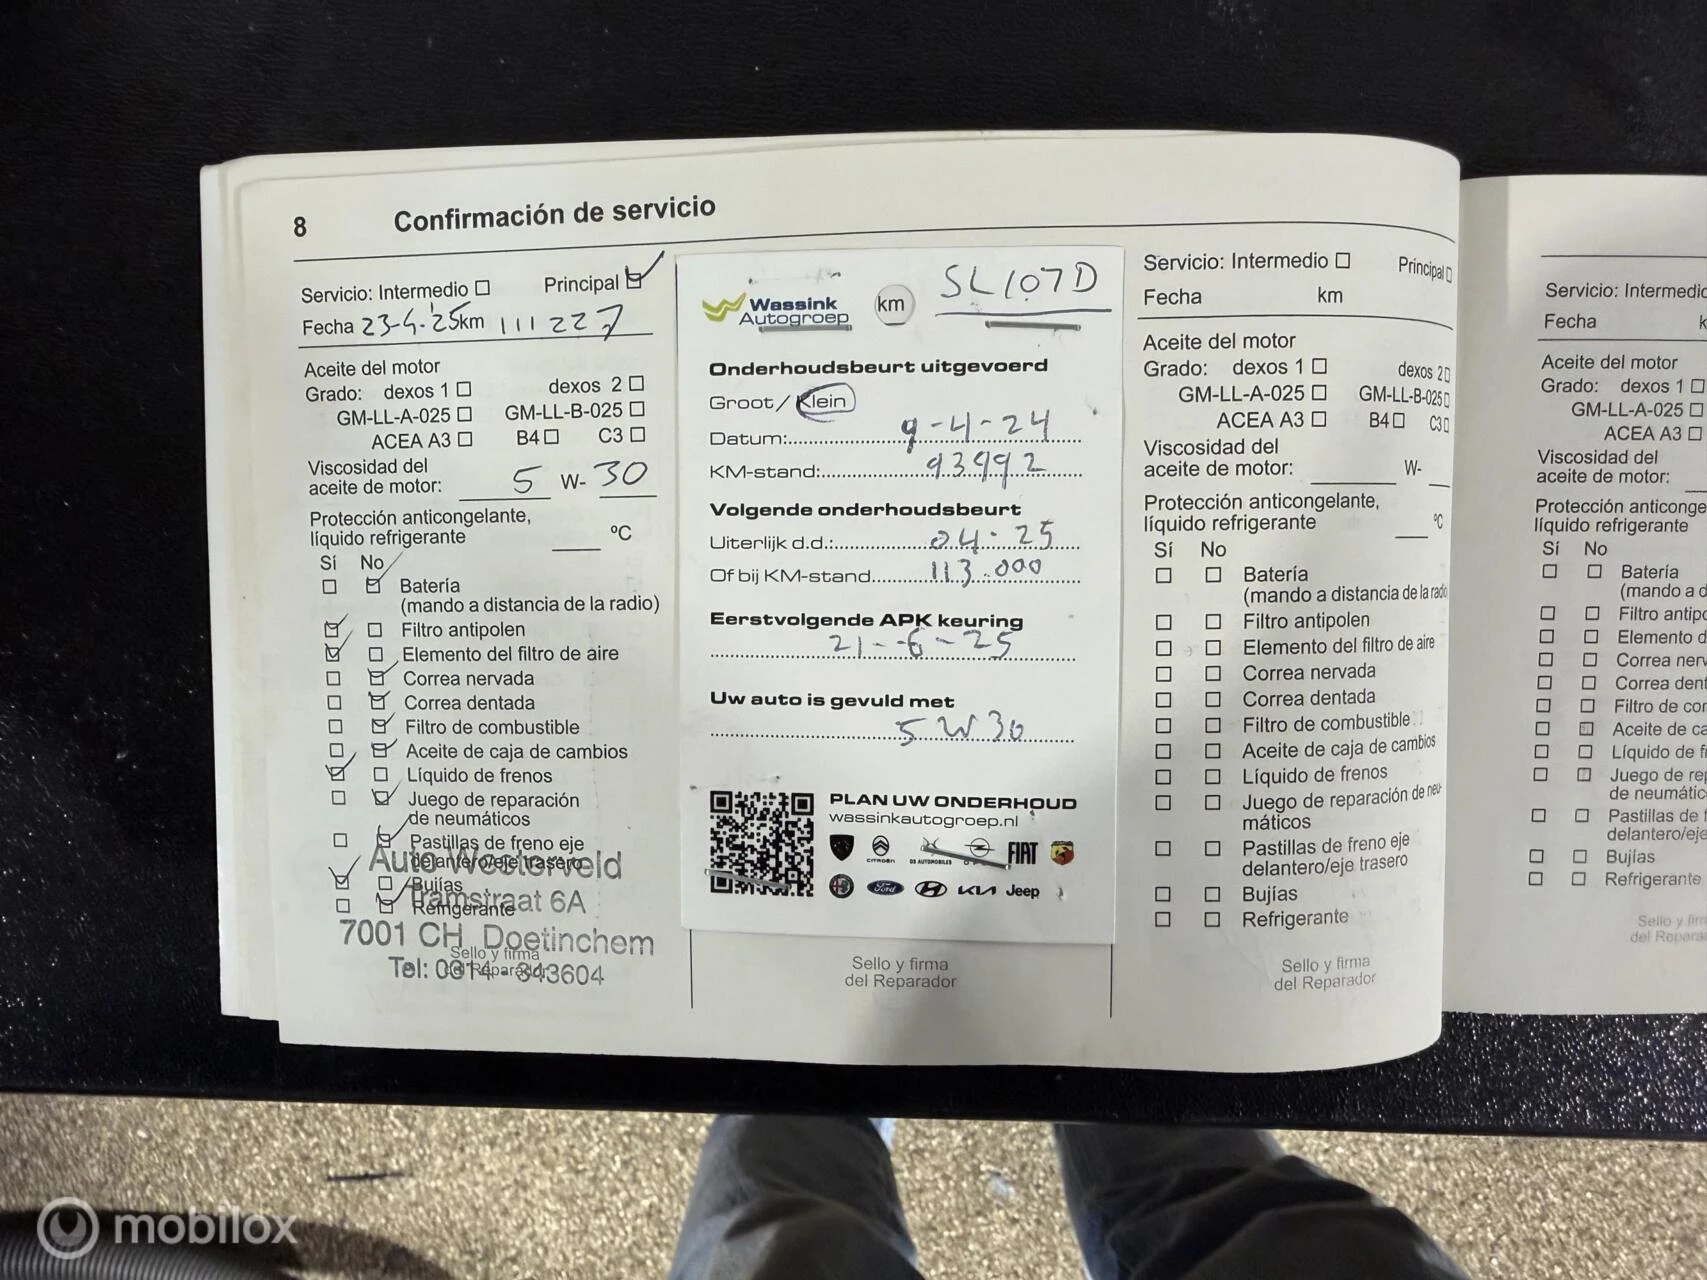 8 Confirmación de servicio
Servicio: Intermedio Principal
Fecha 23-4-'25 km 111227
Aceite del motor
Grado: dexos 1 dexos 2
GM-LL-A-025 GM-LL-B-025
ACEA A3 B4 C3
Viscosidad del
aceite de motor: 5 W- 30
Protección anticongelante,
líquido refrigerante ºC
Sí No
Batería
(mando a distancia de la radio)
Filtro antipolen
Elemento del filtro de aire
Correa nervada
Correa dentada
Filtro de combustible
Aceite de caja de cambios
Líquido de frenos
Juego de reparación
de neumáticos
Pastillas de freno eje
delantero/eje trasero
Auto Westerveld
Bujías
Tramstraat 6A
Refrigerante
7001 CH Doetinchem
Sello y firma
del Reparador
Tel: 0314 - 343604
Wassink
Autogroep
km
SL107D
Onderhoudsbeurt uitgevoerd
Groot / Klein
Datum: 9-4-24
KM-stand: 93992
Volgende onderhoudsbeurt
Uiterlijk d.d.: 04-25
Of bij KM-stand 113.000
Eerstvolgende APK keuring
21-6-25
Uw auto is gevuld met
5W30
PLAN UW ONDERHOUD
wassinkautogroep.nl
CITROËN
DS AUTOMOBILES
FIAT
Ford
KIA
Jeep
Sello y firma
del Reparador
Servicio: Intermedio Principal
Fecha km
Aceite del motor
Grado: dexos 1 dexos 2
GM-LL-A-025 GM-LL-B-025
ACEA A3 B4 C3
Viscosidad del
aceite de motor: W-
Protección anticongelante,
líquido refrigerante ºC
Sí No
Batería
(mando a distancia de la radio
Filtro antipolen
Elemento del filtro de aire
Correa nervada
Correa dentada
Filtro de combustible
Aceite de caja de cambios
Líquido de frenos
Juego de reparación de neu-
máticos
Pastillas de freno eje
delantero/eje trasero
Bujías
Refrigerante
Sello y firma
del Reparador
Servicio: Intermedio
Fecha k
Aceite del motor
Grado: dexos 1
GM-LL-A-025
ACEA A3
Viscosidad del
aceite de motor:
Protección anticonge
líquido refrigerante
Sí No
Batería
(mando a d
Filtro antipo
Elemento d
Correa nerv
Correa dent
Filtro de cor
Aceite de ca
Líquido de f
Juego de rep
de neumátic
Pastillas de f
delantero/eje
Bujías
Refrigerante
Sello y firm
del Repara
mobilox